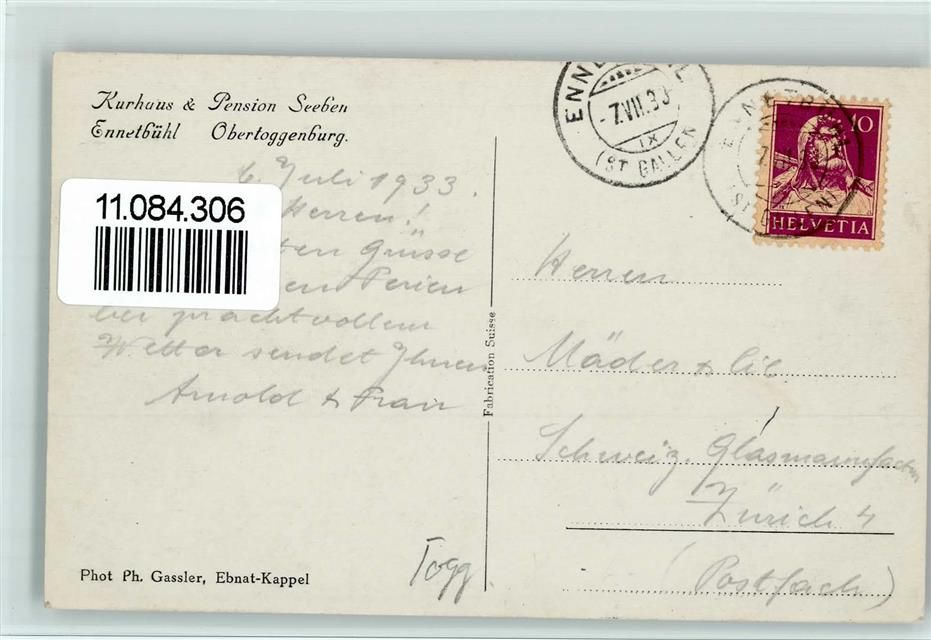 Kurhaus & Pension Seeben
Ennetbühl Obertoggenburg.
6. Juli 1933.
11.084.306
Herren!
ten Grüsse
en Ferien
bei prachtvollem
Wetter sendet Ihnen
Arnold & Frau
Phot Ph. Gassler, Ebnat-Kappel
Togg.
Fabrication Suisse
7.VII.33
IX
(ST GALLEN
10
HELVETIA
Herren
Mäder & Cie
Schweiz. Glasmanufactur
Zürich 4
(Postfach)